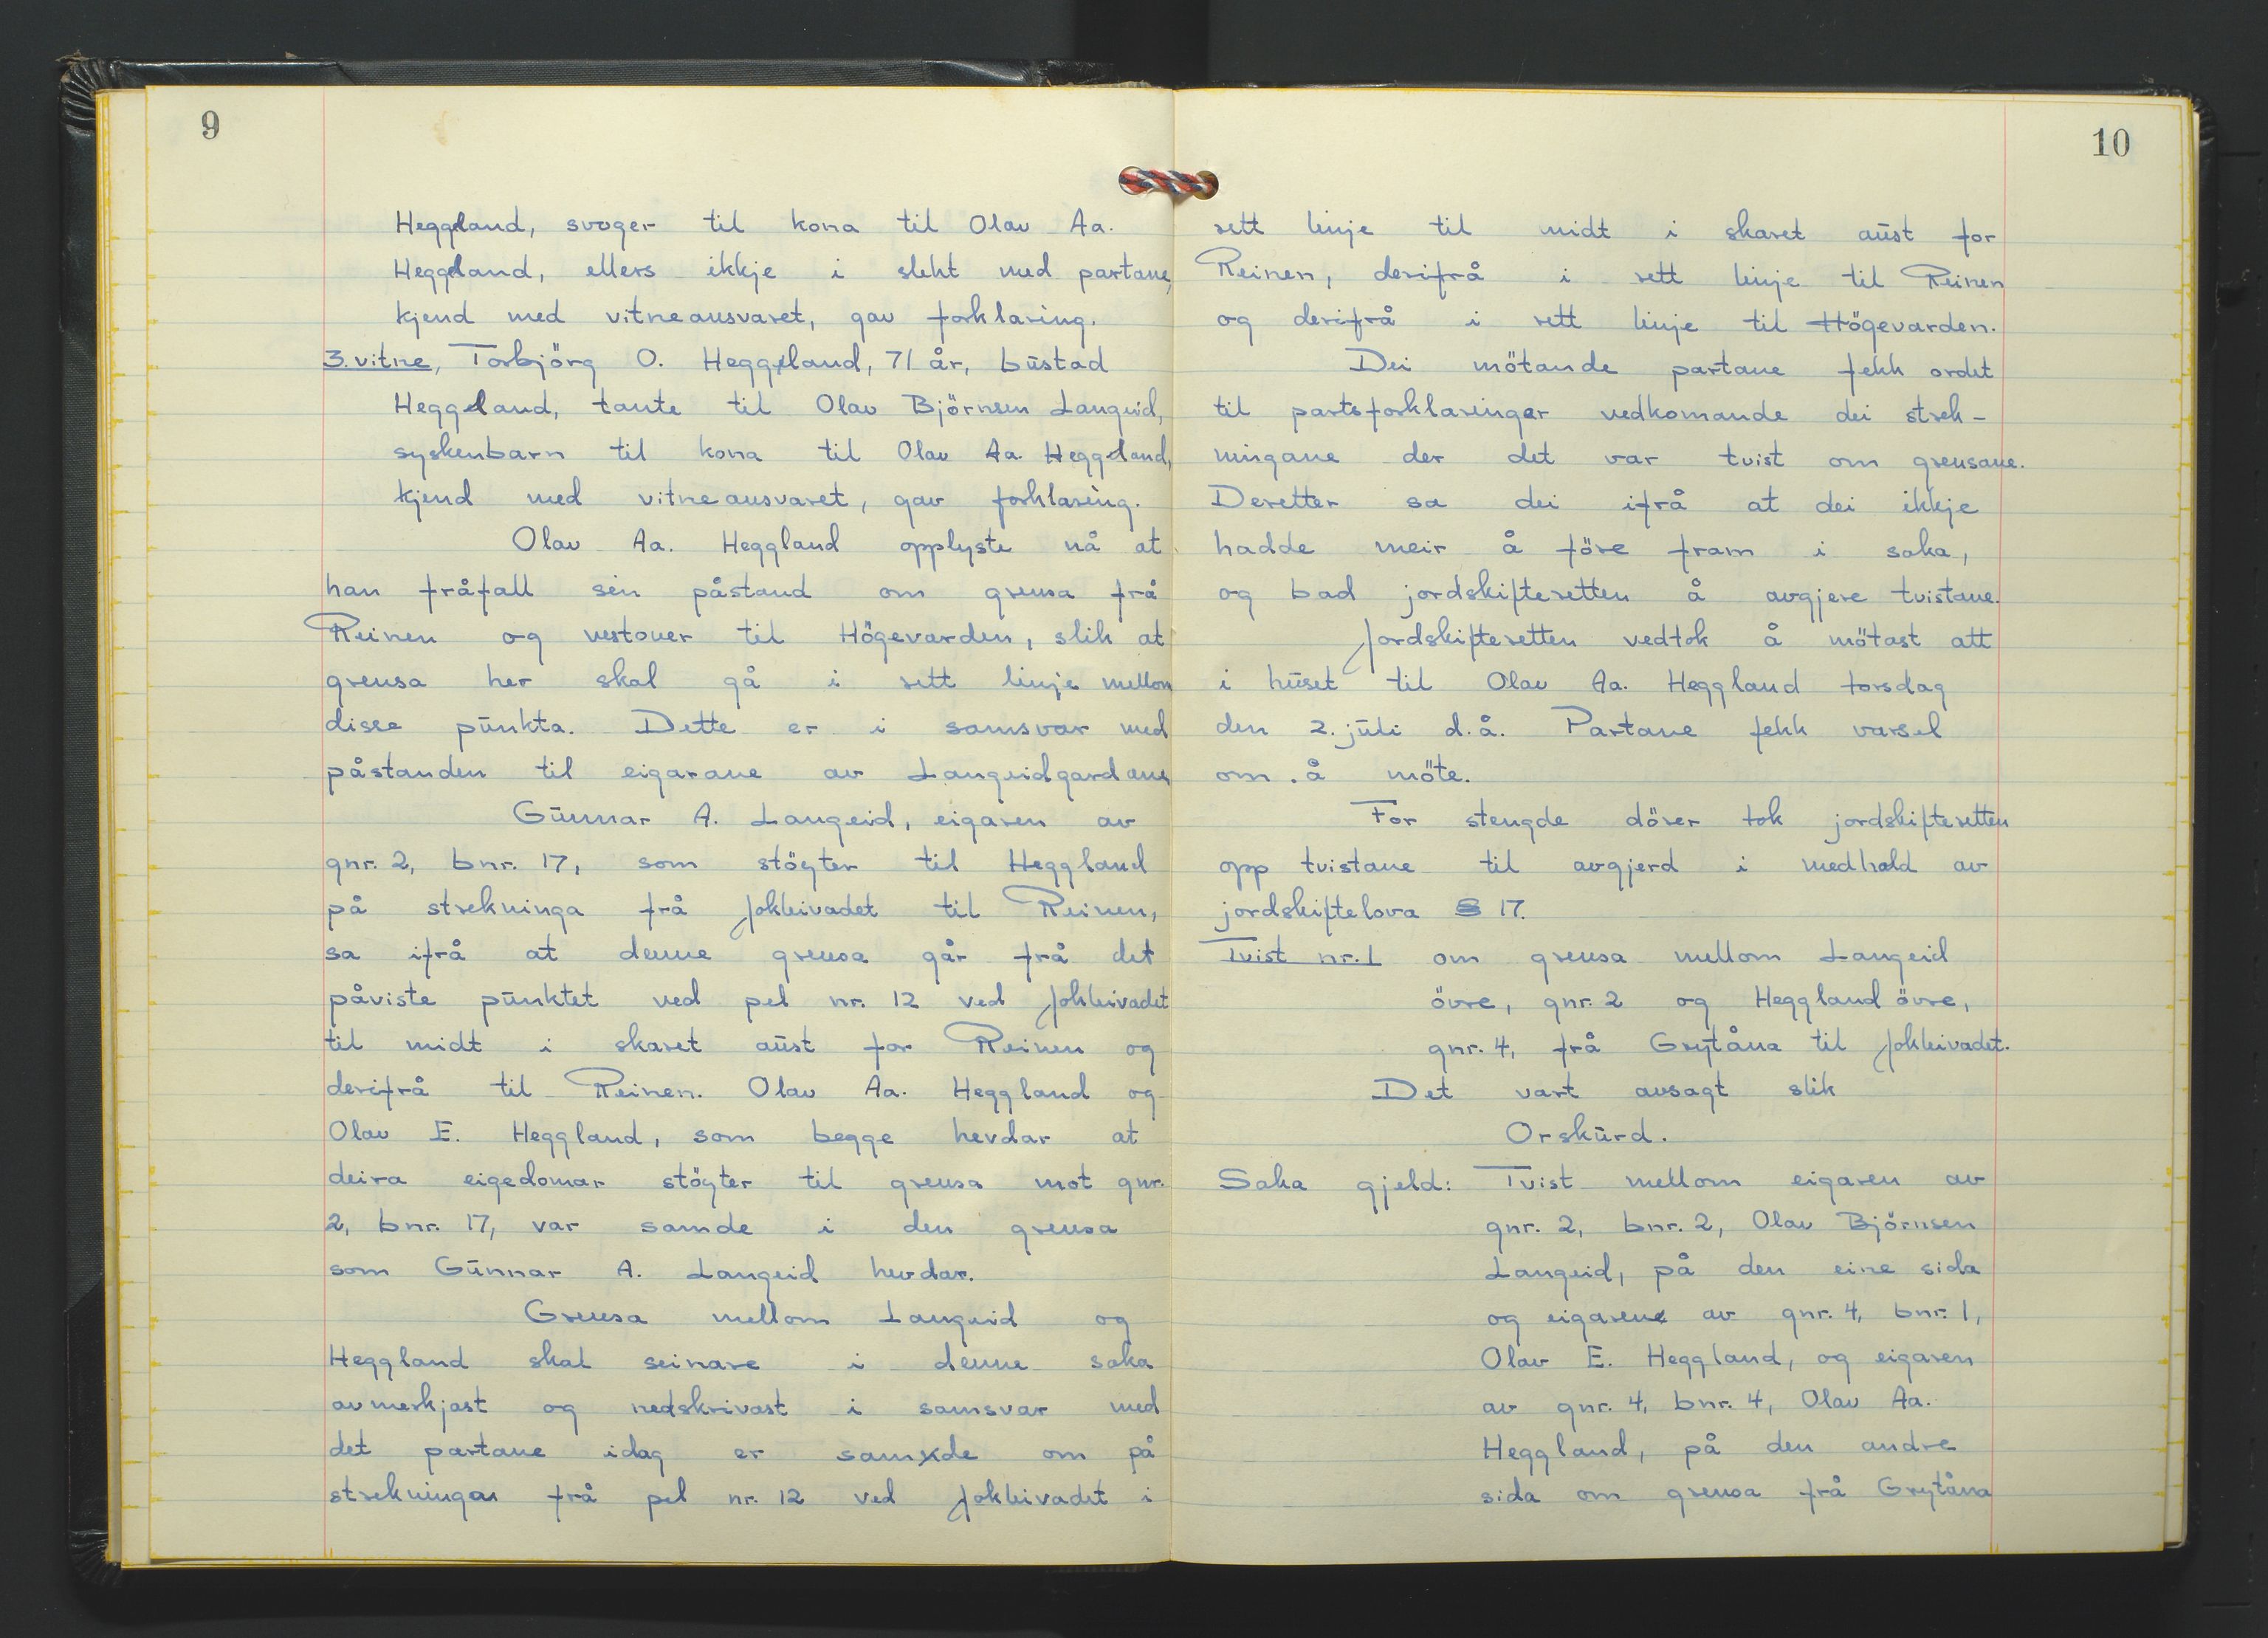 9
Heggland, svoger til kona til Olav Aa.
Heggland, ellers ikkje i slekt med partane,
kjend med vitneansvaret, gav forklaring.
3. vitne, Torbjörg O. Heggland, 71 år, bustad
Heggland, tante til Olav Björnsen Langeid,
syskenbarn til kona til Olav Aa. Heggland,
kjend med vitneansvaret, gav forklaring.
Olav Aa. Heggland opplyste nå at
han fråfall sin påstand om grensa frå
Reinen og vestover til Högevarden, slik at
grensa her skal gå i rett linje mellom
disse punkta. Dette er i samsvar med
påstanden til eigarane av Langeidgardane
Gunnar A. Langeid, eigaren av
gnr. 2, bnr. 17, som stöyter til Heggland
på strekninga frå Jokleivadet til Reinen,
sa ifrå at denne grensa går frå det
påviste punktet ved pel nr. 12 ved Jokleivadet
til midt i skaret aust for Reinen og
derifrå til Reinen. Olav Aa. Heggland og
Olav E. Heggland, som begge hevdar at
deira eigedomar stöyter til grensa mot gnr.
2, bnr. 17, var samde i den grensa
som Gunnar A. Langeid hevdar.
Grensa mellom Langeid og
Heggland skal seinare i denne saka
avmerkjast og nedskrivast i samsvar med
det partane idag er samde om på
strekningan frå pel nr. 12 ved Jokleivadet i
10
rett linje til midt i skaret aust for
Reinen, derifrå i rett linje til Reinen
og derifrå i rett linje til Högevarden.
Dei mötande partane fekk ordet
til partsforklaringar vedkomande dei strek-
ningane der det var tvist om grensane.
Deretter sa dei ifrå at dei ikkje
hadde meir å före fram i saka,
og bad jordskifteretten å avgjere tvistane.
Jordskifteretten vedtok å mötast att
i huset til Olav Aa. Heggland torsdag
den 2. juli d.å. Partane fekk varsel
om å möte.
For stengde dörer tok jordskifteretten
opp tvistane til avgjerd i medhald av
jordskiftelova § 17.
Tvist nr. 1 om grensa mellom Langeid
övre, gnr. 2 og Heggland övre,
gnr. 4, frå Grytåna til Jokleivadet.
Det vart avsagt slik
Orskurd.
Saka gjeld: Tvist mellom eigaren av
gnr. 2, bnr. 2, Olav Björnsen
Langeid, på den eine sida
og eigaren av gnr. 4, bnr. 1,
Olav E. Heggland, og eigaren
av gnr. 4, bnr. 4, Olav Aa.
Heggland, på den andre
sida om grensa frå Grytåna